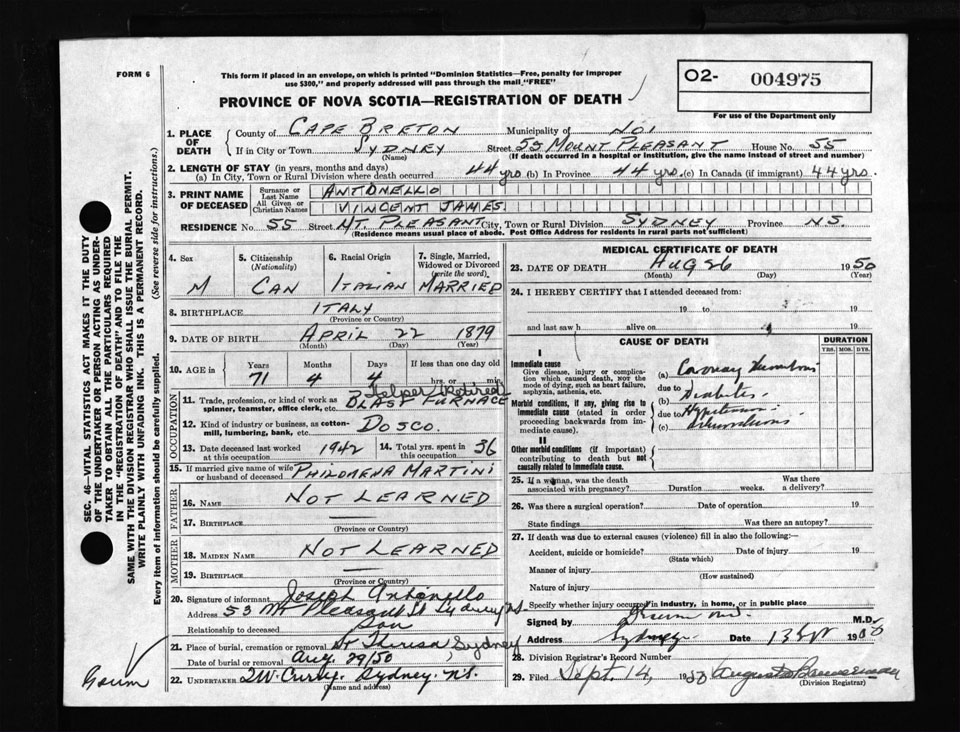 FORM 6
This form if placed in an envelope, on which is printed "Dominion Statistics—Free, penalty for improper
use $300," and properly addressed will pass through the mail "FREE"
PROVINCE OF NOVA SCOTIA—REGISTRATION OF DEATH
O2- 004975
For use of the Department only
1. PLACE OF DEATH
County of CAPE BRETON Municipality of NO1
If in City or Town SYDNEY Street 55 MOUNT PLEASANT House No. 55
(Name) (If death occurred in a hospital or institution, give the name instead of street and number)
2. LENGTH OF STAY (in years, months and days)
(a) In City, Town or Rural Division where death occurred 44 yrs (b) In Province 44 yrs. (c) In Canada (if immigrant) 44 yrs.
3. PRINT NAME OF DECEASED
Surname or Last Name ANTONELLO
All Given or Christian Names VINCENT JAMES
RESIDENCE No. 55 Street MT. PLEASANT City, Town or Rural Division SYDNEY Province N.S.
(Residence means usual place of abode. Post Office Address for residents in rural parts not sufficient)
4. Sex M
5. Citizenship (Nationality) CAN
6. Racial Origin ITALIAN
7. Single, Married, Widowed or Divorced (write the word) MARRIED
8. BIRTHPLACE ITALY
(Province or Country)
9. DATE OF BIRTH APRIL 22 1879
(Month) (Day) (Year)
10. AGE in Years 71 Months 4 Days 4 If less than one day old hrs. or min.
OCCUPATION
11. Trade, profession, or kind of work as spinner, teamster, office clerk, etc. Helper (Retired) BLAST FURNACE
12. Kind of industry or business, as cotton-mill, lumbering, bank, etc. DOSCO.
13. Date deceased last worked at this occupation 1942
14. Total yrs. spent in this occupation 36
15. If married give name of wife or husband of deceased PHILOMENA MARTINI
FATHER
16. NAME NOT LEARNED
17. BIRTHPLACE —
(Province or Country)
MOTHER
18. MAIDEN NAME NOT LEARNED
19. BIRTHPLACE —
(Province or Country)
20. Signature of informant Joseph Antonello
Address 53 Mt Pleasant St Sydney NS
Relationship to deceased Son
21. Place of burial, cremation or removal St Theresa Sydney
Date of burial or removal Aug. 29/50
22. UNDERTAKER T.W. Curry. Sydney. N.S.
(Name and address)
MEDICAL CERTIFICATE OF DEATH
23. DATE OF DEATH AUG 26 1950
(Month) (Day) (Year)
24. I HEREBY CERTIFY that I attended deceased from:
19 to 19
and last saw h alive on 19
CAUSE OF DEATH
DURATION
YRS. MOS. DYS.
I
Immediate cause
Give disease, injury or complication which caused death, nor the mode of dying, such as heart failure, asphyxia, asthenia, etc.
(a) Coronary Thrombosis
due to
Morbid conditions, if any, giving rise to immediate cause (stated in order proceeding backwards from immediate cause).
(b) Diabetes
due to
(c) Hypertension
II
Other morbid conditions (if important) contributing to death but not causally related to immediate cause.
25. If a woman, was the death associated with pregnancy? Duration weeks. Was there a delivery?
26. Was there a surgical operation? Date of operation 19
State findings Was there an autopsy?
27. If death was due to external causes (violence) fill in also the following:—
Accident, suicide or homicide? Date of injury 19
(State which)
Manner of injury
(How sustained)
Nature of injury
Specify whether injury occurred in industry, in home, or in public place
Signed by M.D.
Address Sydney Date 13 Sept 1950
28. Division Registrar's Record Number
29. Filed Sept. 14, 1950
(Division Registrar)
SEC. 46—VITAL STATISTICS ACT MAKES IT THE DUTY
OF THE UNDERTAKER OR PERSON ACTING AS UNDER-
TAKER TO OBTAIN ALL THE PARTICULARS REQUIRED
IN THE "REGISTRATION OF DEATH" AND TO FILE THE
SAME WITH THE DIVISION REGISTRAR WHO SHALL ISSUE THE BURIAL PERMIT.
WRITE PLAINLY WITH UNFADING INK. THIS IS A PERMANENT RECORD.
Every item of information should be carefully supplied. (See reverse side for instructions.)